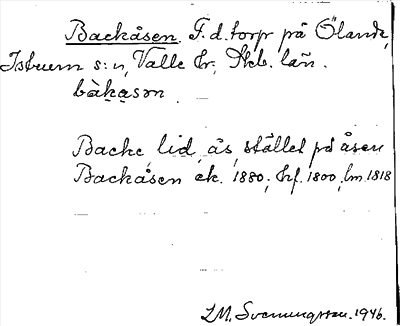 Backåsen. F. d. torp på Öland,
Istrum s:n, Valle hr, Skb. län.
bàkasən
Backe, lid, ås, stället på åsen
Backåsen ek. 1880, hf. 1800, lm 1818
I.M. Svenungsson. 1946.